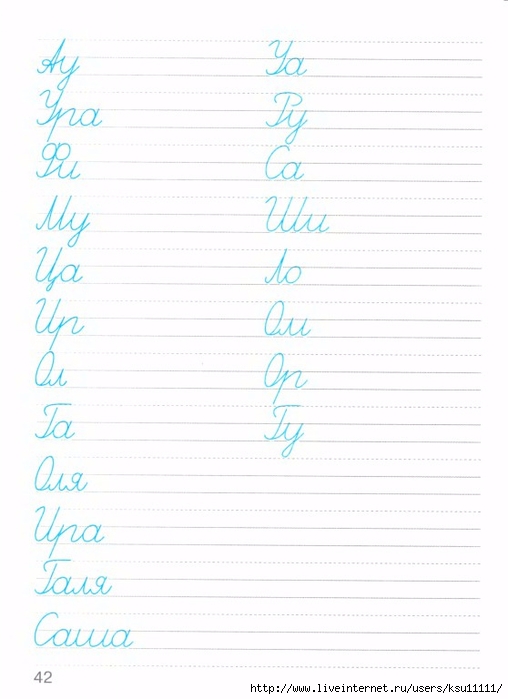 Ау Уа
Ура Ру
Фи Са
Му Ши
Ца Ло
Ир Ом
Ол Ор
Га Гу
Оля
Ира
Галя
Саша
42
http://www.liveinternet.ru/users/ksu11111/